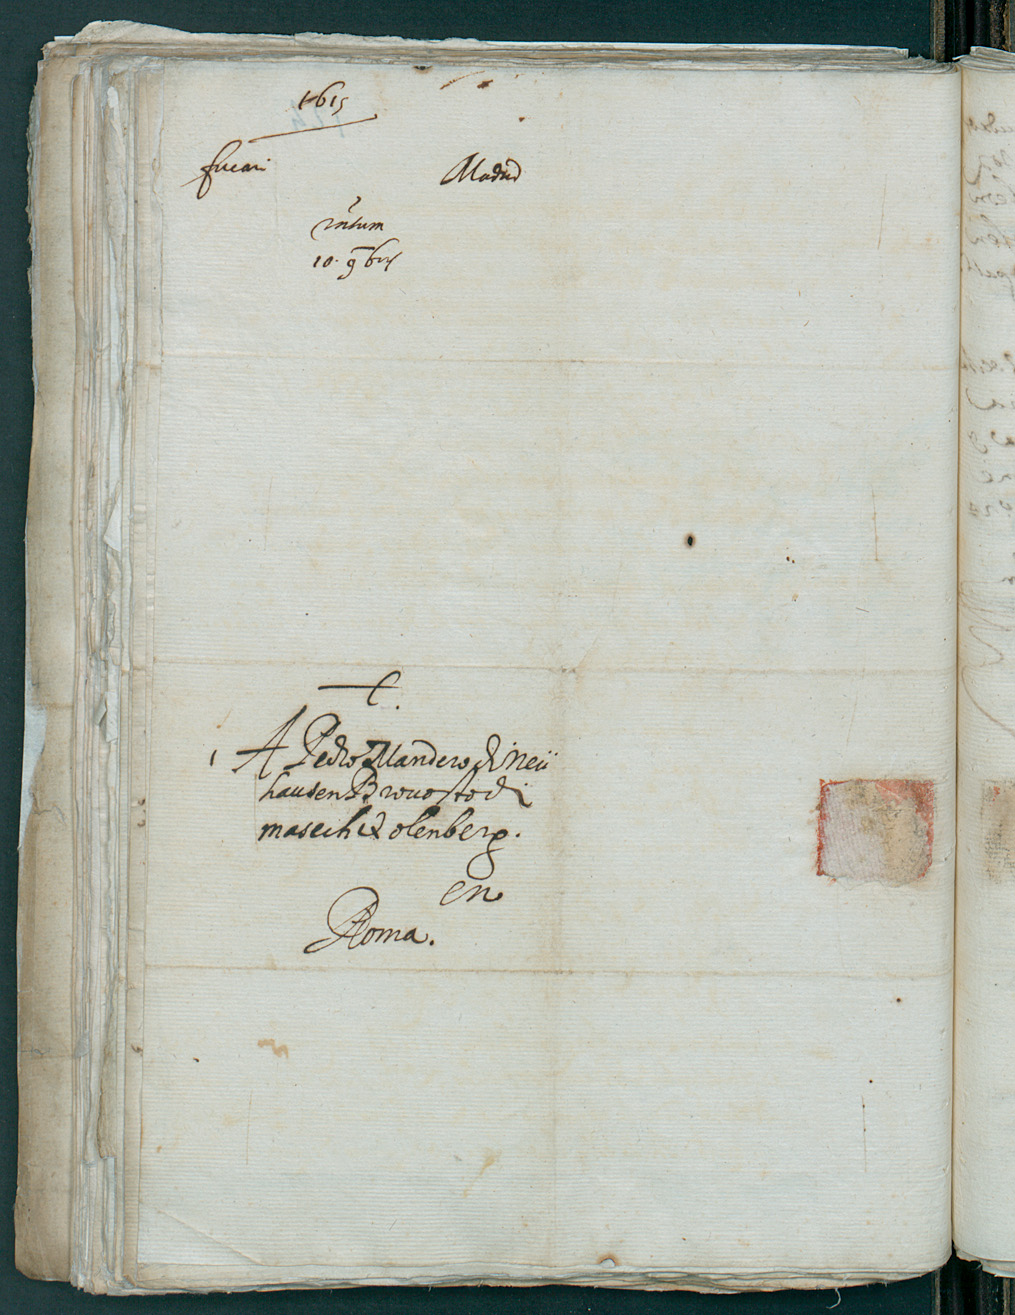 1615
fucari Madrid
10. 9bris
A Pedro Mandero di Neü
hausen Provosto di
masech et olenberg.
en
Roma.